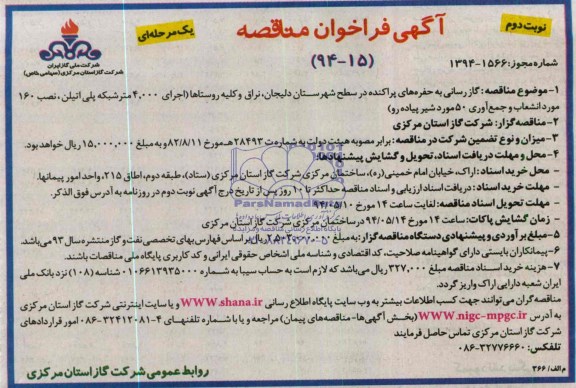 نوبت دوم
آگهی فراخوان مناقصه
یک مرحله‌ای
(۹۴-۱۵)
شماره مجوز: ۱۳۹۴-۱۵۶۶
شرکت ملی گاز ایران
شرکت گاز استان مرکزی (سهامی خاص)
۱-موضوع مناقصه: گازرسانی به حفره‌های پراکنده در سطح شهرستان دلیجان، نراق و کلیه روستاها (اجرای ۴,۰۰۰ مترشبکه پلی اتیلن، نصب ۱۶۰
مورد انشعاب و جمع‌آوری ۵۰ مورد شیر پیاده رو)
۲-مناقصه گزار: شرکت گاز استان مرکزی
۳-میزان و نوع تضمین شرکت در مناقصه: برابر مصوبه هیئت دولت به شماره ت ۲۸۴۹۳ هـ مورخ ۸۲/۸/۱۱ و به مبلغ ۱۵,۰۰۰,۰۰۰ ریال خواهد بود.
۴-محل و مهلت دریافت اسناد، تحویل و گشایش پیشنهادها:
- محل خرید اسناد: اراک، خیابان امام خمینی (ره)، ساختمان مرکزی شرکت گاز استان مرکزی (ستاد)، طبقه دوم، اطاق ۲۱۵، واحد امور پیمانها.
- مهلت خرید اسناد: دریافت اسناد ارزیابی و اسناد مناقصه حداکثر تا ۱۰ روز پس از تاریخ درج آگهی نوبت دوم در روزنامه به آدرس فوق الذکر.
- مهلت تحویل اسناد مناقصه: لغایت ساعت ۱۴ مورخ ۹۴/۰۵/۱۰
- زمان گشایش پاکات: ساعت ۱۴ مورخ ۹۴/۰۵/۱۴ در ساختمان مرکزی شرکت گاز استان مرکزی
۵-مبلغ برآوردی و پیشنهادی دستگاه مناقصه گزار: به مبلغ ریال بر اساس فهارس بهای تخصصی نفت و گاز منتشره سال ۹۳ می‌باشد.
۶-پیمانکاران بایستی دارای گواهینامه صلاحیت، کد اقتصادی و شناسه ملی اشخاص حقوقی ایرانی و کد کاربری پایگاه ملی مناقصات باشند.
۷-هزینه خرید اسناد مناقصه مبلغ ۳۲۷,۰۰۰ ریال می‌باشد که لازم است به حساب سیبا به شماره ۰۱۰۶۶۱۳۹۳۵۰۰۰ شناسه (۱۰۸) نزد بانک ملی
ایران شعبه دارایی اراک واریز گردد.
مناقصه گران می‌توانند جهت کسب اطلاعات بیشتر به وب سایت پایگاه اطلاع رسانی www.shana.ir و یا سایت اینترنتی شرکت گاز استان مرکزی
به آدرس www.nigc-mpgc.ir (بخش آگهی‌ها-مناقصه‌های پیمان) مراجعه و یا با شماره تلفنهای ۴-۳۲۴۱۲۰۸۱-۰۸۶ امور قراردادهای
شرکت گاز استان مرکزی تماس حاصل فرمایند
تلفکس: ۳۲۷۷۶۶۶۰-۰۸۶
روابط عمومی شرکت گاز استان مرکزی
م الف/ ۳۶۶
ParsNamadData